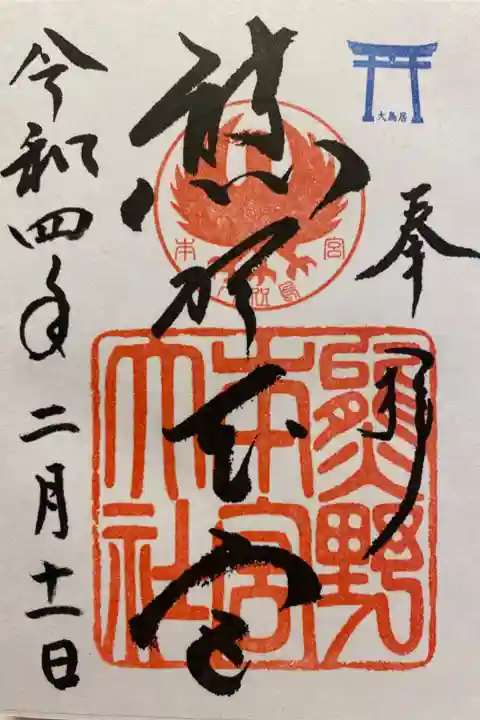 大鳥居
奉拝
熊野本宮
本宮
八咫烏
熊野
本宮
大社
令和四年二月十一日